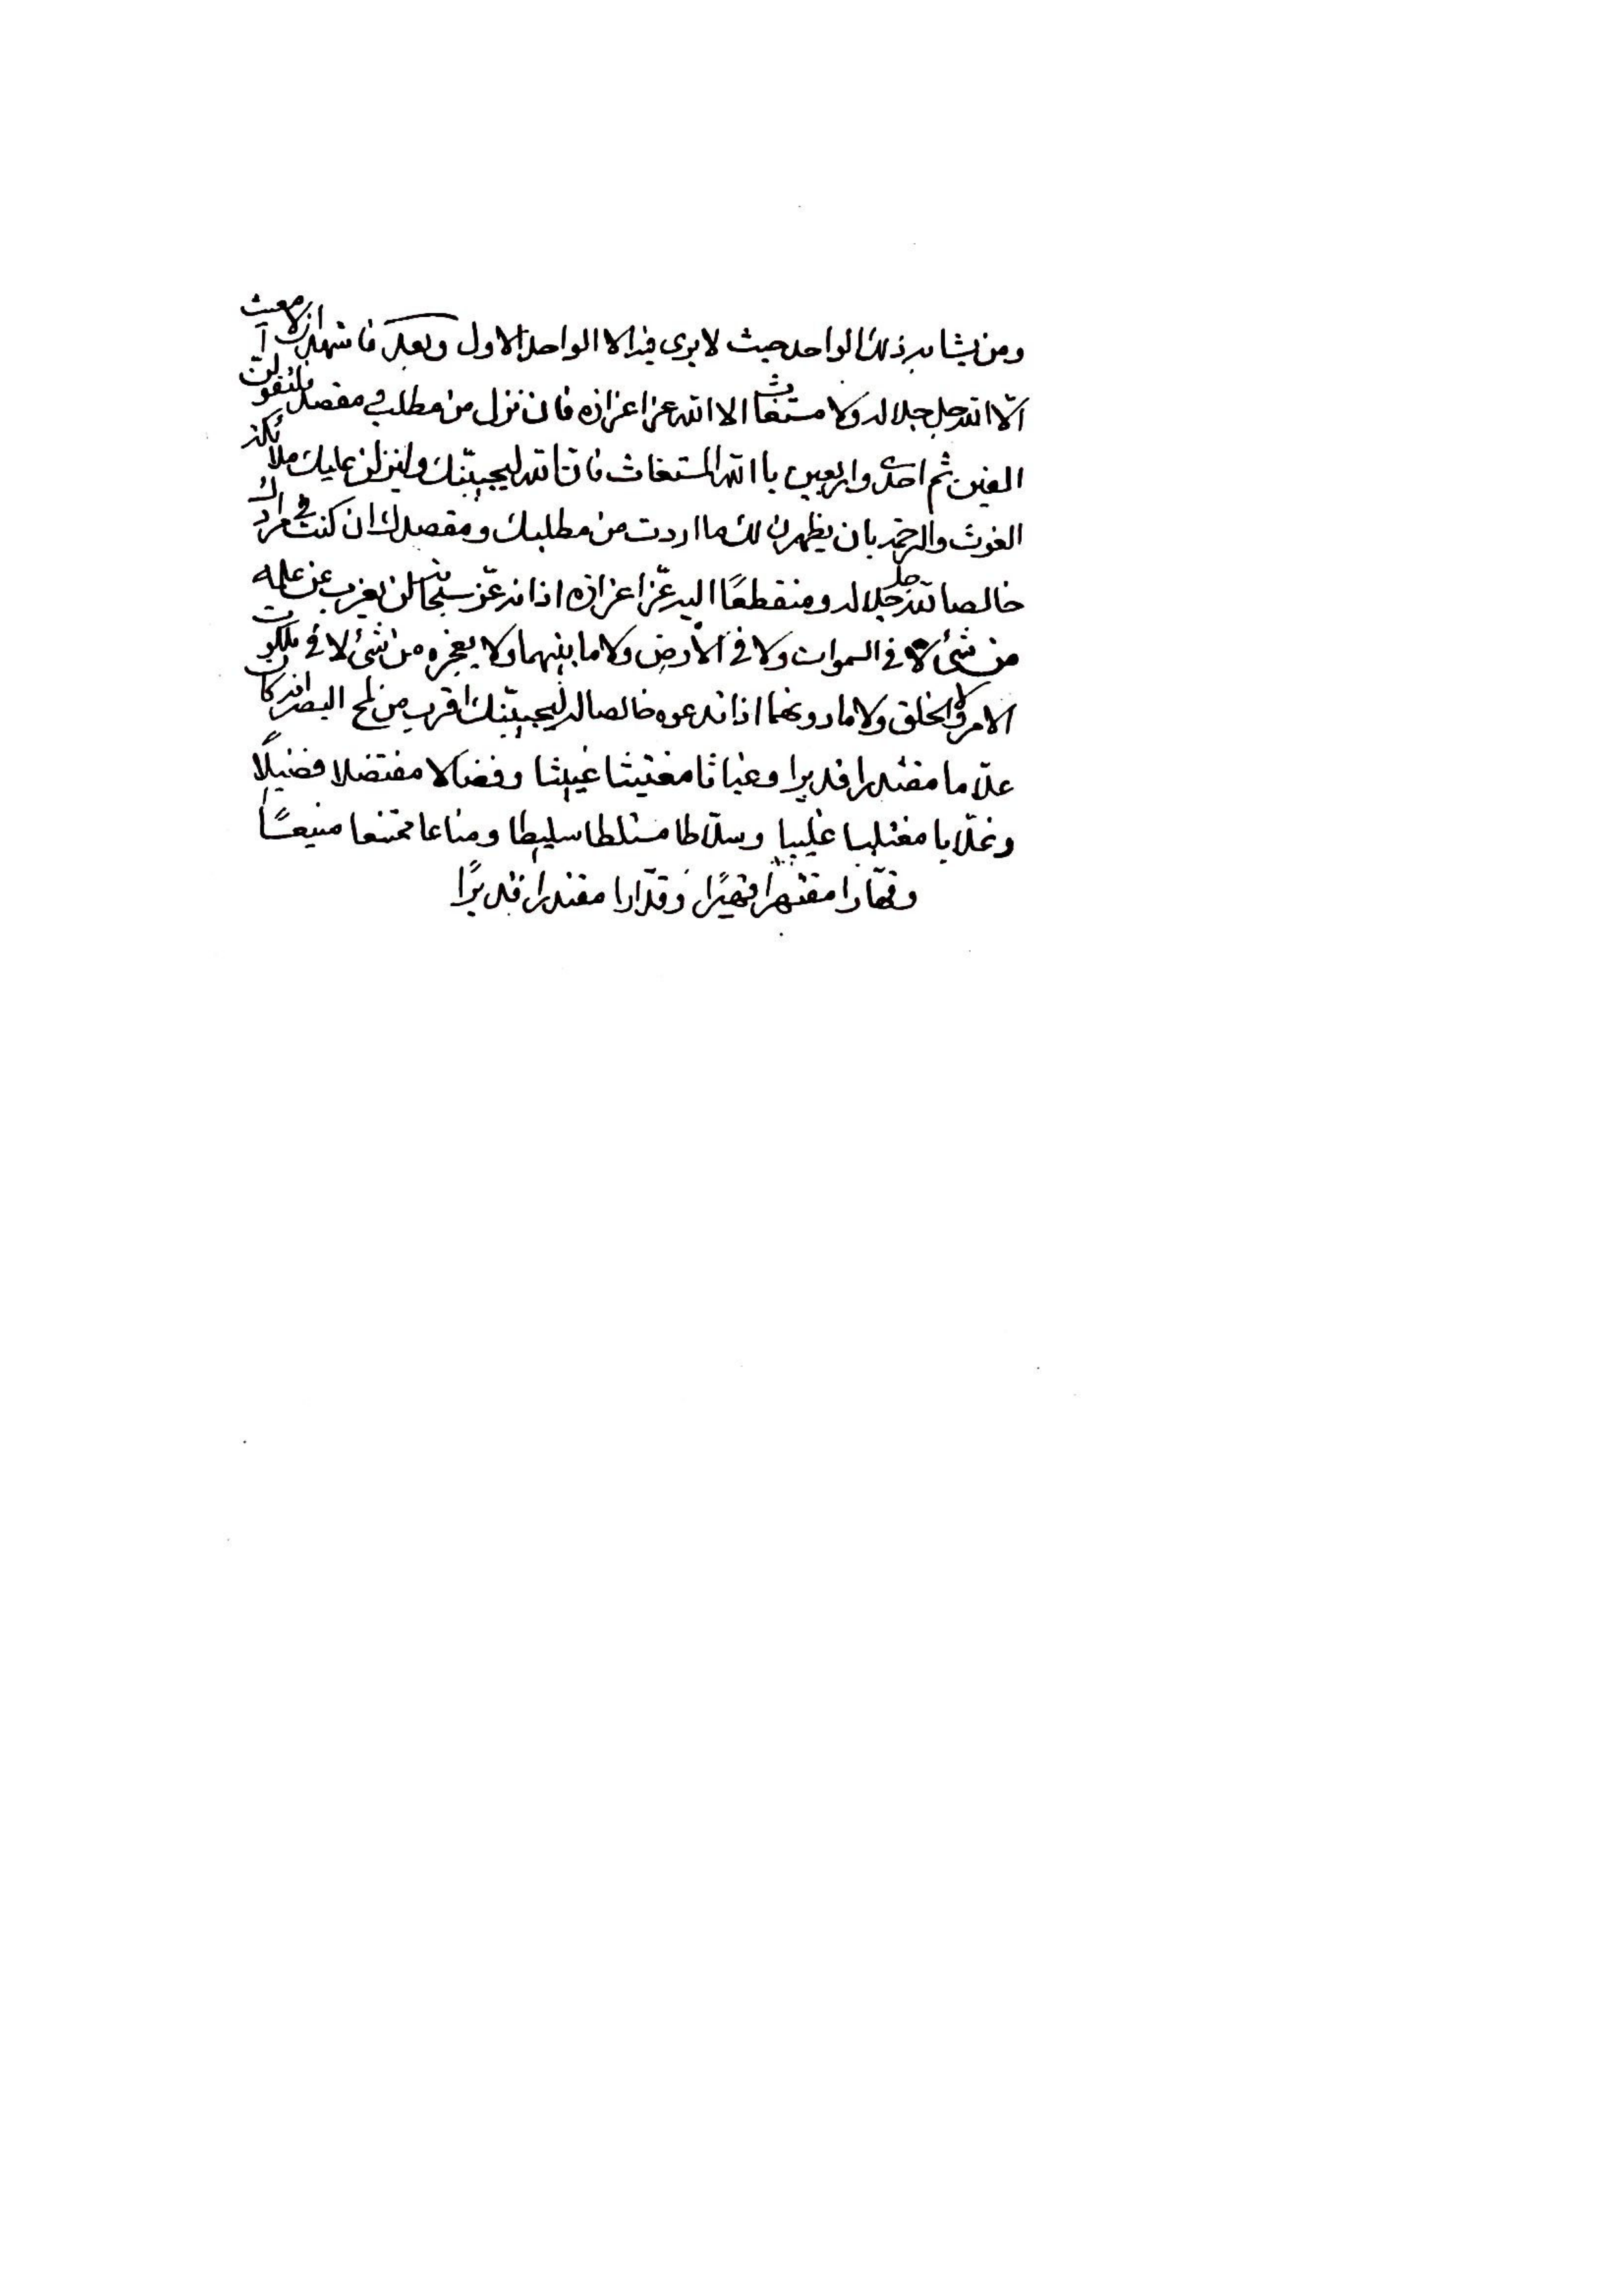 ومن يشابه ذلك الواحد حيث لا يرى فيه الا الواحد الاول وبعد فاشهد ان لا مغيث
الّا الله جل جلاله ولا مستغاث الا الله عز اعزازه فان نزل من مطلب في مقصد فلتقولنّ
الفين ثم احدى واربعين يا الله المستغاث فان الله ليجيبنّك ولينزلن عليك ملائكة
الغوث والرحمة بان يظهرن لك ما اردت من مطلبك ومقصدك ان كنت في مرادك
خالصا لله جل جلاله ومنقطعًا اليه عزّ اعزازه اذ انه عزّ سبحانه لن يعزب عن علمه
من شئ لا في السموات ولا في الارض ولا ما بينهما ولا يعجزه من شئ لا في ملكوت
الامر ولا الخلق ولا ما دونهما اذا تدعوه خالصا له ليجيبنّك اقرب من لمح البصر انه كان
علّاما مقتدرا قديرا وغياثا مغتيثا غييثا وفضالا مفتضلا فضيلًا
وغلّابا مغتلبا غليبا وسلّاطا مستلطا سليطا ومناعا ممتنعا منيعًا
وقهّارا مقتهرا قهيرًا وقدّارا مقتدرا قديرًا